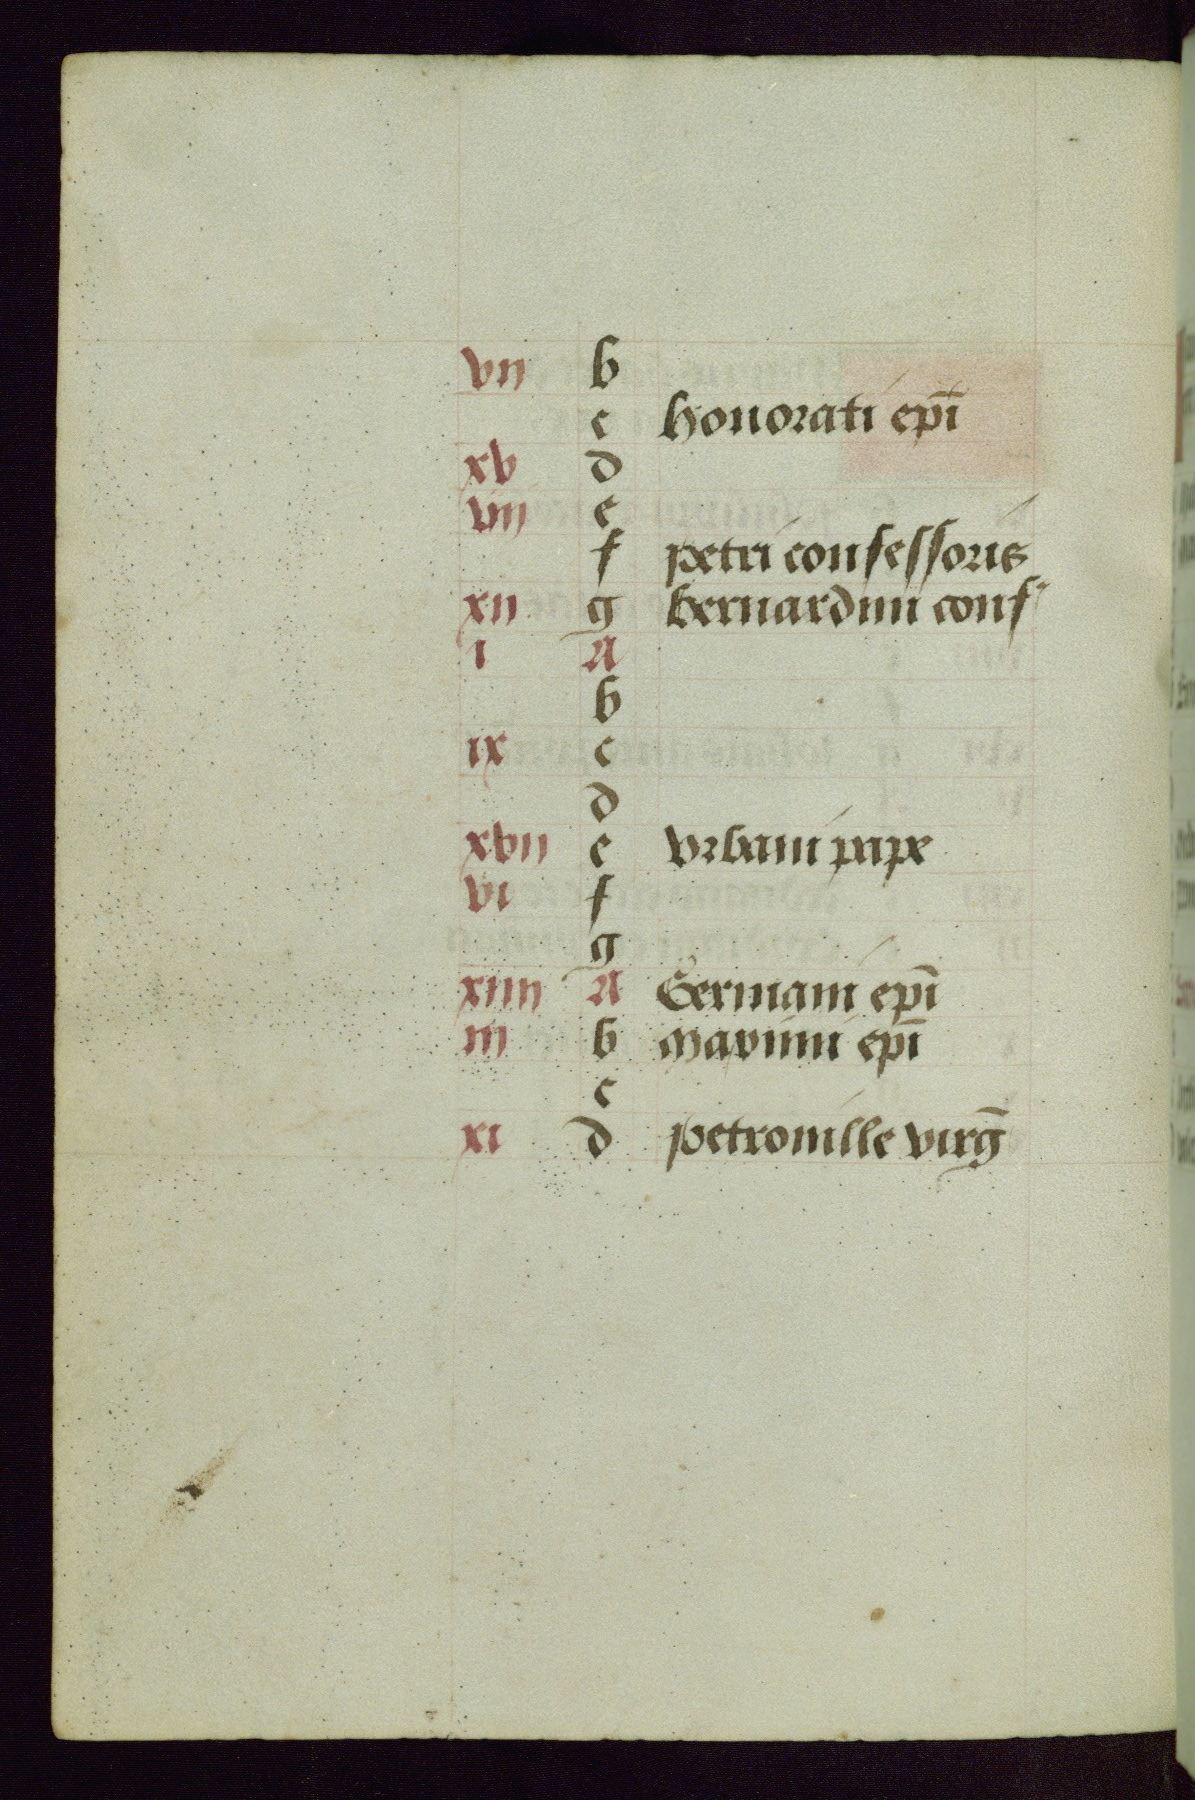 vii b
c honorati epĩ
xv d
viij e
f petri confessoris
xii g bernardini conf
i A
b
ix c
d
xvii e vrbani pape
vi f
g
xiiii A Germani epĩ
iii b Maximi epĩ
c
xi d petronille virg̃